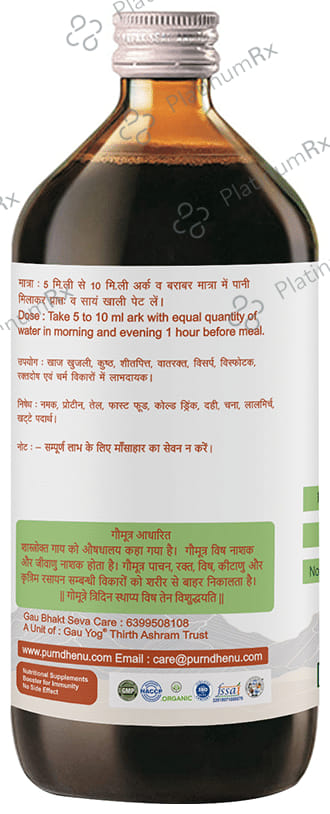 PlatinumRx
PlatinumRx
मात्रा : 5 मि.ली से 10 मि.ली अर्क व बराबर मात्रा में पानी
मिलाकर प्रातः व सायं खाली पेट लें।
Dose : Take 5 to 10 ml ark with equal quantity of
water in morning and evening 1 hour before meal.
उपयोग : खाज खुजली, कुष्ठ, शीतपित्त, वातरक्त, विसर्प, विस्फोटक,
रक्तदोष एवं चर्म विकारों में लाभदायक।
निषेध : नमक, प्रोटीन, तेल, फास्ट फूड, कोल्ड ड्रिंक, दही, चना, लालमिर्च,
खट्टे पदार्थ।
नोट : – सम्पूर्ण लाभ के लिए माँसाहार का सेवन न करें।
गौमूत्र आधारित
शास्त्रोक्त गाय को औषधालय कहा गया है। गौमूत्र विष नाशक
और जीवाणु नाशक होता है। गौमूत्र पाचन, रक्त, विष, कीटाणु और
कृत्रिम रसायन सम्बन्धी विकारों को शरीर से बाहर निकालता है।
|| गोमूत्रे त्रिदिन स्थाप्य विष तेन विशुद्धयति ||
Gau Bhakt Seva Care : 6399508108
A Unit of : Gau Yog® Thirth Ashram Trust
www.purndhenu.com Email : care@purndhenu.com
Nutritional Supplements
Booster for Immunity
No Side Effect
GMP
HACCP
ORGANIC
ISO
fssai